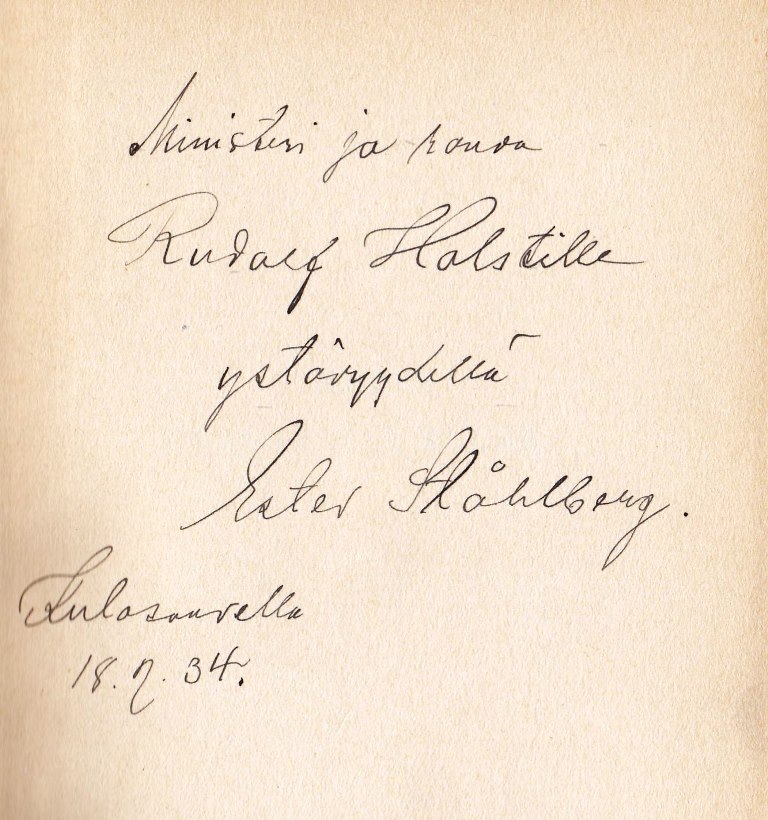 Ministeri ja rouva
Rudolf Holstille
ystävyydellä
Ester Ståhlberg.
Kulosaarella
18.7.34.